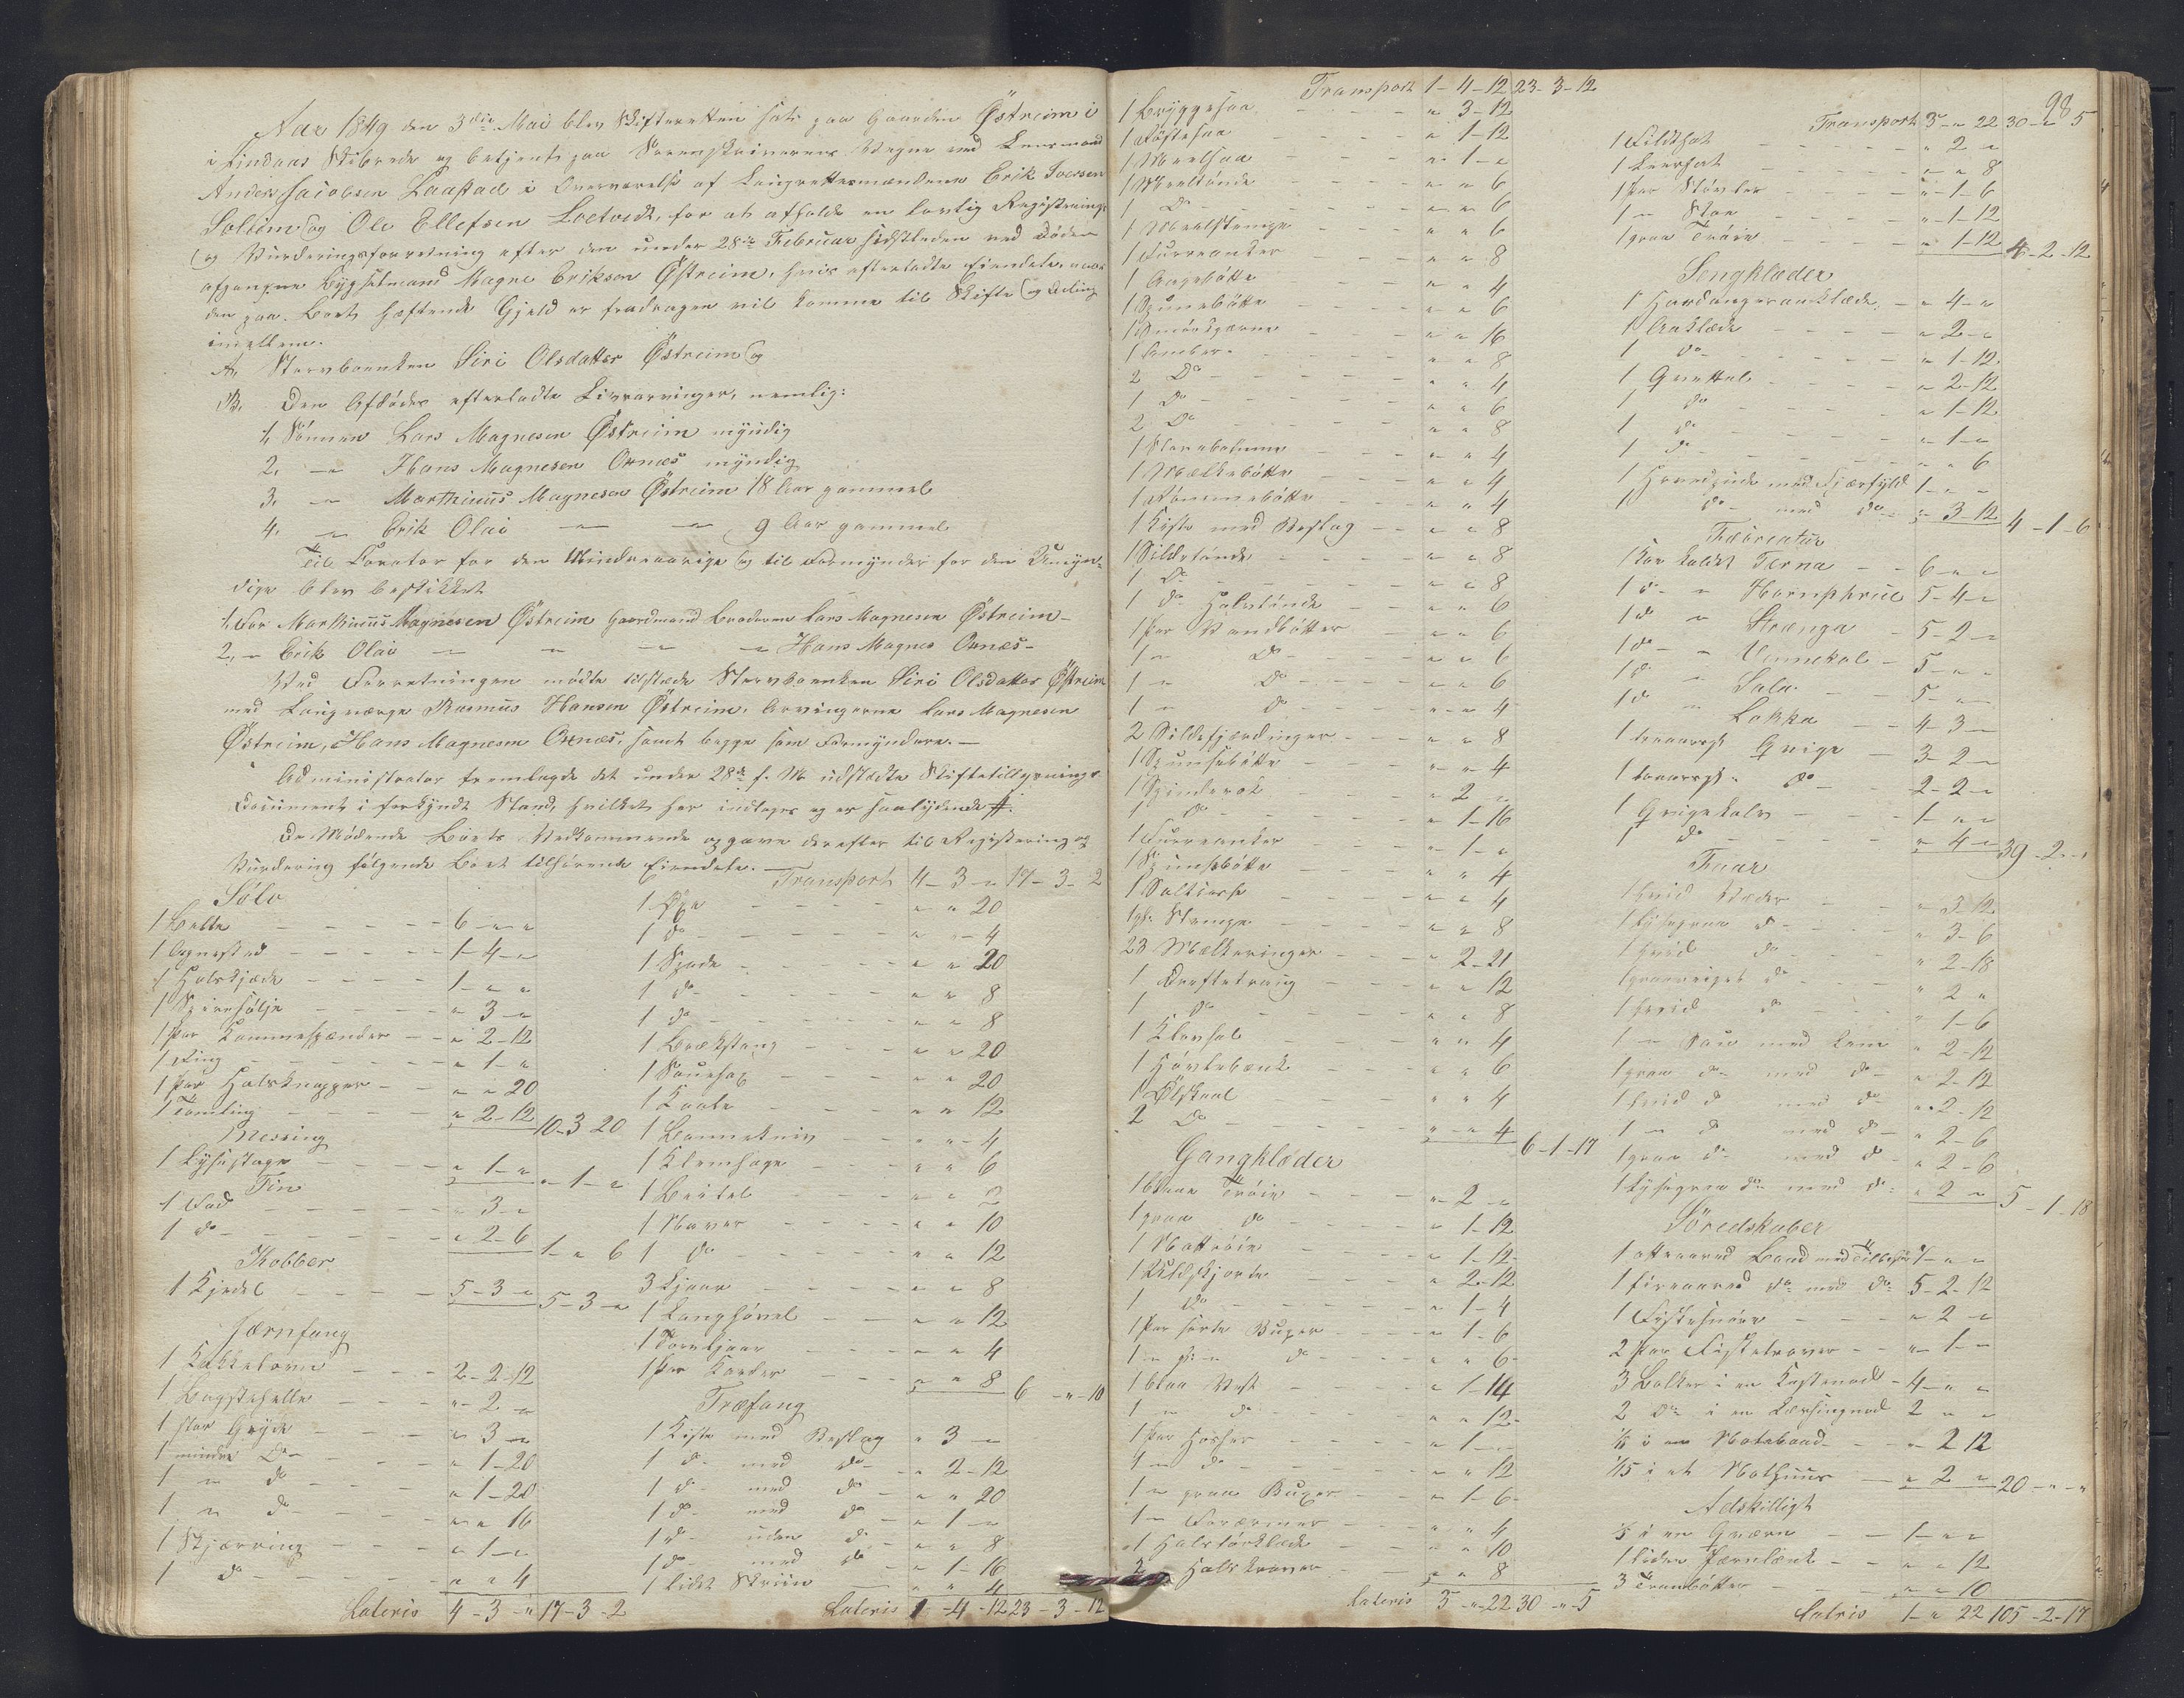 Aar 1849 den 3die Mai blev Skifteretten sat paa Gaarden Østreim i
i Lindaas Skibrede og betjent paa Sorenskriverens Vegne ved Lensmand
Anders Jacobsen Laastad i Overværelse af Laugrettesmændene Erik Iversen
Soleim og Ole Ellefsen Loetvedt, for at afholde en lovlig Registrerings
og Vurderingsforretning efter den under 28de Februar sidstleden ved Døden
afgangne Bygselmand Magne Erikson Østreim, hvis efterladte Eiendele, naar
den paa Boet hæftende Gjeld er fradragen vil komme til Skifte og Deling
imellem.
A, Stervboenken Siri Olsdatter Østreim og
B, Den Afdødes efterladte Livsarvinger, nemlig:
1, Sønnen Lars Magnesen Østreim myndig
2, — Hans Magnesen Oxnæs myndig
3, — Marthinus Magnesen Østreim 18 Aar gammel
4, — Erik Olai — — 9 Aar gammel
Til Curator for den Mindreaarige og til Formynder for den Umyn-
dige blev beskikket
1, For Marthinus Magnesen Østreim Gaardmand Broderen Lars Magnesen Østreim—
2, — Erik Olai — — — Hans Magnes Oxnæs—
Ved Forretningen mødte tilstæde Stervboenken Siri Olsdatter Østreim
med Laugværge Rasmus Hansen Østreim, Arvingerne Lars Magnesen
Østreim, Hans Magnesen Oxnæs, samt begge som Formyndere.—
Administrator fremlagde det under 28de f. M. udstædte Skiftetillysnings
Document i forkyndt Stand hvilket her indtages og er saalydende #.
De Mødende Boets Vedkommende opgave derefter til Registrering og
Vurdering følgende Boet tilhørende Eiendele.—
Sølv
1 Belte 6 - " - "
1 Agnesked 1 - 4 - "
1 Halskjæde 1 - " - "
1 Spiresølje " 3 - "
1 Par Kammespænder " 2 - 12
1 Ring " 1 - "
1 Par Halsknapper " " 20
1 Tømling " 2 - 12 10 - 3 20
Messing
1 Lysestage " 1 - " " - 1 - "
Tin
1 Fad " 3 - "
1 do " 2 - 6 1 - " 6
Kobber
1 Kjedel 5 - 3 - " 5 - 3 - "
Jernfang
1 Kakkelovn 2 - 2 - 12
1 Bagstehelle " 2 "
1 stor Gryde " 3 - "
1 mindre Do " 1 - 20
1 " do " 1 - 20
1 " do " " 16
1 Skjærring " 1 - "
1 do " " 4
Lateris 4 - 3 - " 17 - 3 - 2
Transport 4 - 3 - " 17 - 3 - 2
1 Øxe " " 20
1 do " " 4
1 Spade " " 20
1 do " " 8
1 do " " 8
1 Brækstang " " 20
1 Sauesax " " 20
1 Kaabe " " 12
1 Baanekniv " " 4
1 Klemsage " " 6
1 Beitel " " 2
1 Naver " " 10
1 do " " 12
3 Ljaar " " 8
1 Langhøvel " " 12
1 Torvljaar " " 4
1 Par Karder " " 8 6 - " - 10
Træfang
1 Kiste med Beslag " 3 - "
1 do med do " 2 - 12
1 do med do " " 20
1 do med do " 1 - "
1 do uden do " " 8
1 do med do " 1 - 16
1 lidet Skriin " " 4
Lateris 1 - 4 - 12 23 - 3 - 12
Transport 1 - 4 - 12 23 - 3 - 12
1 Bryggesaa " 3 - 12
1 " 1 - 12
1 Meelsaa " 1 - "
1 Meeltønde " " 6
1 Do " " 6
1 " " 6
1 Furreanker " " 8
1 " " 4
1 Spunsbøtte " " 6
1 Smørkjærne " " 16
1 Amber " " 8
2 Do " " 4
1 Do " " 6
2 Do " " 8
1 " " 4
1 Melkebøtte " " 4
1 Rømmebøtte " " 4
1 Kiste med Beslag " " 8
1 Sildetønde " " 8
1 Do " " 8
1 do Halvtønde " " 6
1 Par Vandbøtter " " 6
1 " Do " " 6
1 " Do " " 6
1 " do " " 4
2 Sildefjerdinger " " 8
1 Spunsebøtte " " 4
1 Spinderok " 2 "
1 do " 1 - 16
1 Furreanker " 1 - "
1 Spunsebøtte " " 4
1 " " 4
1 Stampe " " 8
23 Mælkeringer " 2 - 21
1 Drøftetroug " " 12
1 do " " 8
1 Kløvsal " " 4
1 Høvlebænk " " 6
1 Ølskaal " " 4
2 Do " " 4 6 - 1 - 17
Gangklæder
1 blaa Trøie " 2 - "
1 graa do " 1 - 12
1 Nattrøie " 1 - 12
1 Uldskjorte " 2 - 12
1 do " 1 - 4
1 Par sorte Buxer " 1 - 6
1 " do " " 6
1 blaa Vest " 1 - 14
1 " do " " 12
1 Par Hoser " 1 - "
1 " do " " 12
1 " graa Buxer " 1 - 6
1 " Forærmer " " 4
1 Halstørklæde " " 10
2 Halskraver " " 8
Lateris 3 - " - 22 30 - " - 5
98
Transport 3 - " 22 30 - " 5
1 Filthat " 2 "
1 " " 8
1 Par Støvler " 1 - 6
1 " Skoe " 1 - 12
1 graa Trøie " 1 - 12 4 - 2 - 12
Sengklæder
1 Hardangeraaklæde " 4 - "
1 Aaklæde " 2 - "
1 do " 1 - 12
1 Grettel " 2 - 12
1 do " 1 - 12
1 do " 1 - "
1 do " " 6
1 Hovedpude med Fjærfyld 1 - " "
1 do med do " 3 - 12 4 - 1 - 6
Fæcreatur
1 Koe kaldet Terna 6 - " "
1 do " Hornphrue 5 - 4 - "
1 do " Strænga 5 - 2 - "
1 do " Vennekol 5 - " "
1 do " Sala 5 - "
1 do " Lakka 4 - 3 - "
1 Qvige 3 - 2 - "
1 do 2 - 2 - "
1 Qvigekalv 1 - " "
1 do " 4 - " 39 - 2 - "
Faar
1 hvid Væder " 3 - 12
1 lysegraa do " 3 - 6
1 hvid do " 2 - 18
1 do " 2 "
1 hvid do " 1 - 6
1 " Sau med Lam " 2 - 12
1 graa do med do " 2 - 12
1 hvid do med do " 2 - 12
1 " do med do " 2 - 6
1 graa do med do " 2 - 6
1 lysegraa do med do " 2 " 5 - 1 - 18
Søredskaber
1 ottraared Baad med Tilbehør 7 - " "
1 fireaared do med do 5 - 2 - 12
1 Fiskesnøre " 2 "
2 Par " 1 - "
3 Bolker i en Kastenod 4 - " "
2 do i en 2 " "
i en Notebaad " 2 12
1/15 i et Nothuus " 2 " 20 - " - "
Adskilligt
i en Qværn 1 - " "
1 liden Jernlænk " " 12
3 Tranbøtter " " 10
Latris 1 - " 22 105 - 2 - 17